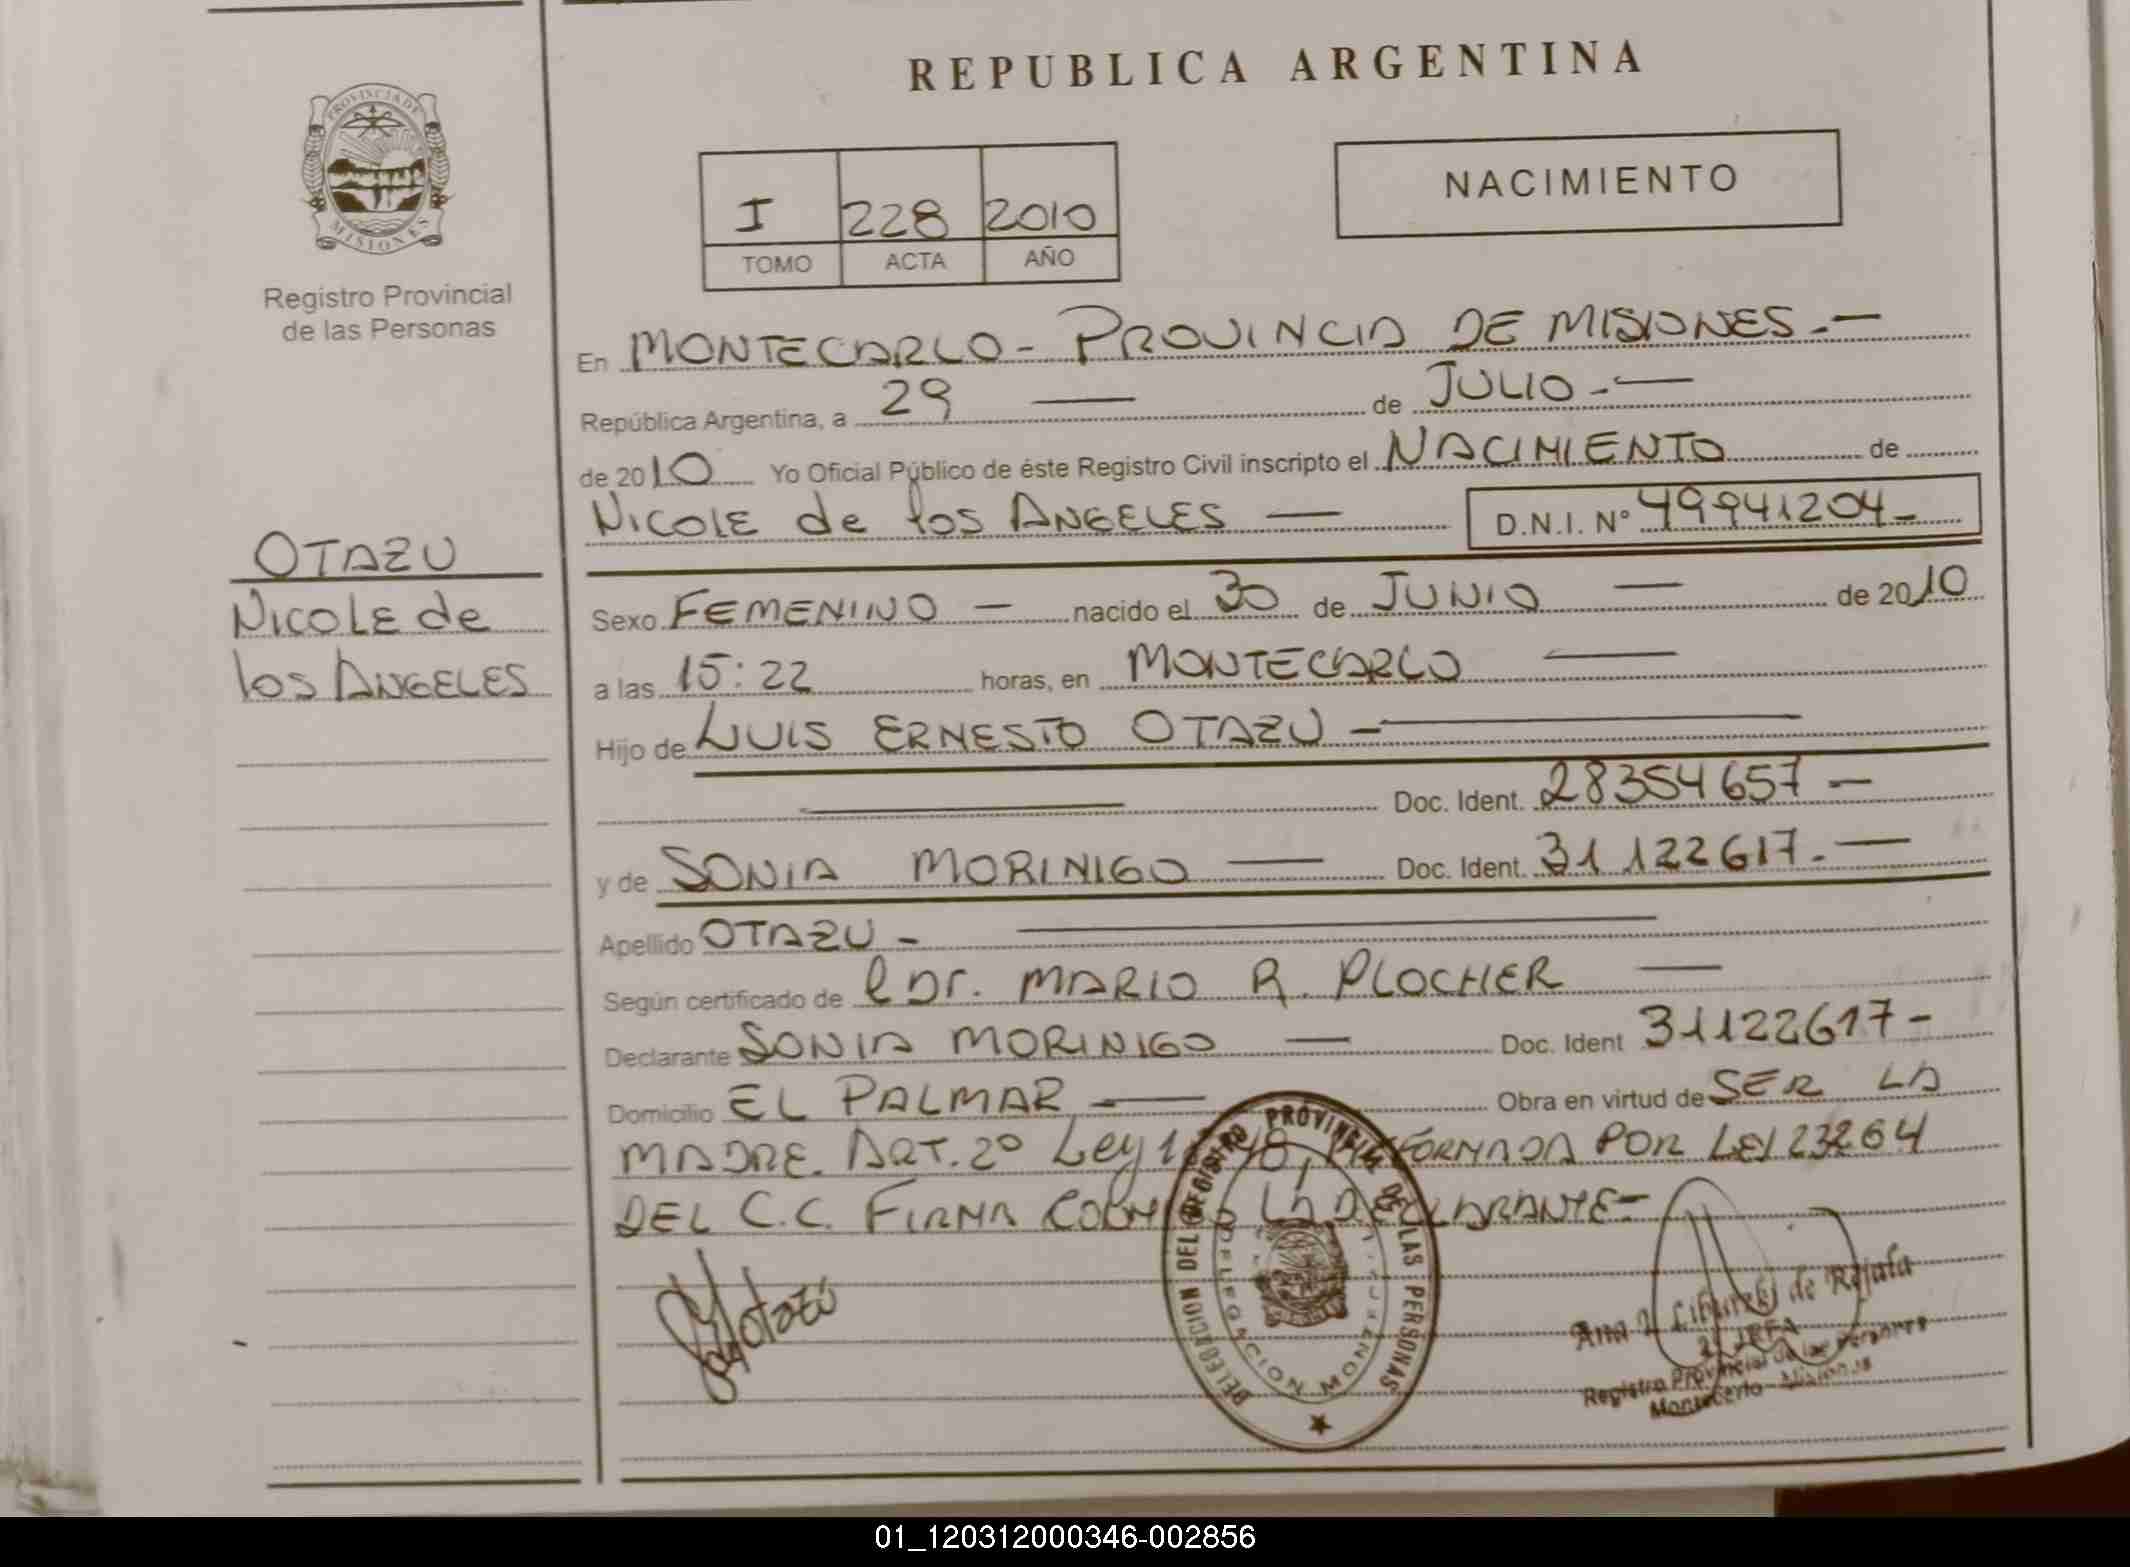 REPUBLICA ARGENTINA
PROVINCIA DE
MISIONES
Registro Provincial
de las Personas
I 228 2010
TOMO ACTA AÑO
NACIMIENTO
En MONTECARLO - PROVINCIA DE MISIONES.-
República Argentina, a 29 de JULIO.-
de 2010 Yo Oficial Público de éste Registro Civil inscripto el NACIMIENTO de
Nicole de los ANGELES D.N.I. N° 49941204-
OTAZU
Nicole de
los ANGELES
Sexo FEMENINO nacido el 30 de JUNIO de 2010
a las 15:22 horas, en MONTECARLO
Hijo de LUIS ERNESTO OTAZU
Doc. Ident. 28354657-
y de SONIA MORINIGO Doc. Ident. 31122617.-
Apellido OTAZU -
Según certificado de Dr. MARIO R. PLOCHER
Declarante SONIA MORINIGO Doc. Ident 31122617-
Domicilio EL PALMAR Obra en virtud de SER LA
MADRE. ART. 2° Ley POR LEI 23264
DEL C.C. FIRMA LA DECLARANTE-
DELEGACION DEL REGISTRO PROVINCIAL DE LAS PERSONAS
Otazú
Ana de
JEFA
Registro Provincial de las Personas
Montecarlo - Misiones
01_120312000346-002856